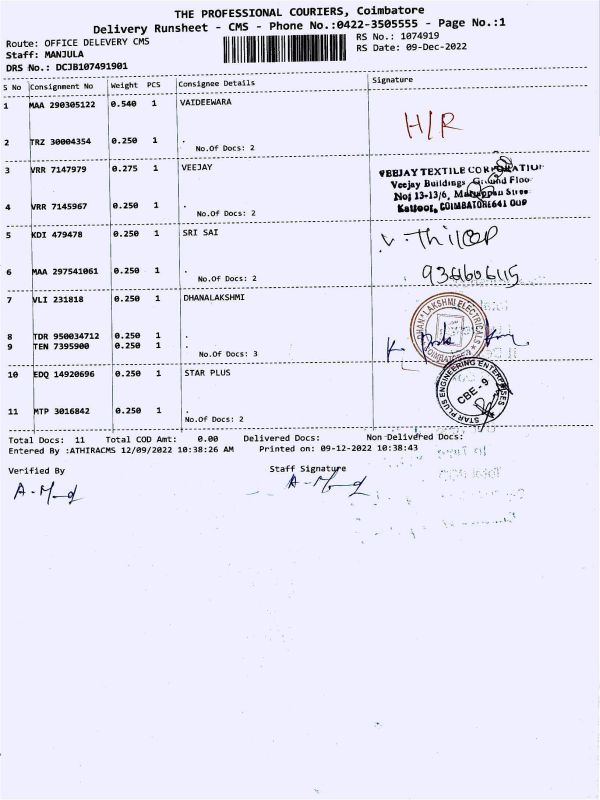 THE PROFESSIONAL COURIERS, Coimbatore
Delivery Runsheet - CMS - Phone No.:0422-3505555 - Page No.:1
Route: OFFICE DELEVERY CMS
RS No.: 1074919
Staff: MANJULA
RS Date: 09-Dec-2022
DRS No.: DCJB107491901
S No Consignment No Weight PCS Consignee Details Signature
1 MAA 290305122 0.540 1 VAIDEEWARA
H/R
2 TRZ 30004354 0.250 1 .
No.Of Docs: 2
3 VRR 7147979 0.275 1 VEEJAY
VEEJAY TEXTILE CORPORATION
Veejay Buildings Ground Floo
No; 13-13/6, Mariappan Stree
Kattoor, COIMBATORE641 009
4 VRR 7145967 0.250 1 .
No.Of Docs: 2
5 KDI 479478 0.250 1 SRI SAI
6 MAA 297541061 0.250 1 .
No.Of Docs: 2
7 VLI 231818 0.250 1 DHANALAKSHMI
DHAN LAKSHMI ELECTRICALS
COIMBATORE
8 TDR 950034712 0.250 1 .
9 TEN 7395900 0.250 1 .
No.Of Docs: 3
10 EDQ 14920696 0.250 1 STAR PLUS
STAR PLUS ENGINEERING ENTERPRISES
CBE - 9
11 MTP 3016842 0.250 1 .
No.Of Docs: 2
Total Docs: 11 Total COD Amt: 0.00 Delivered Docs: Non-Delivered Docs:
Entered By :ATHIRACMS 12/09/2022 10:38:26 AM Printed on: 09-12-2022 10:38:43
Verified By Staff Signature